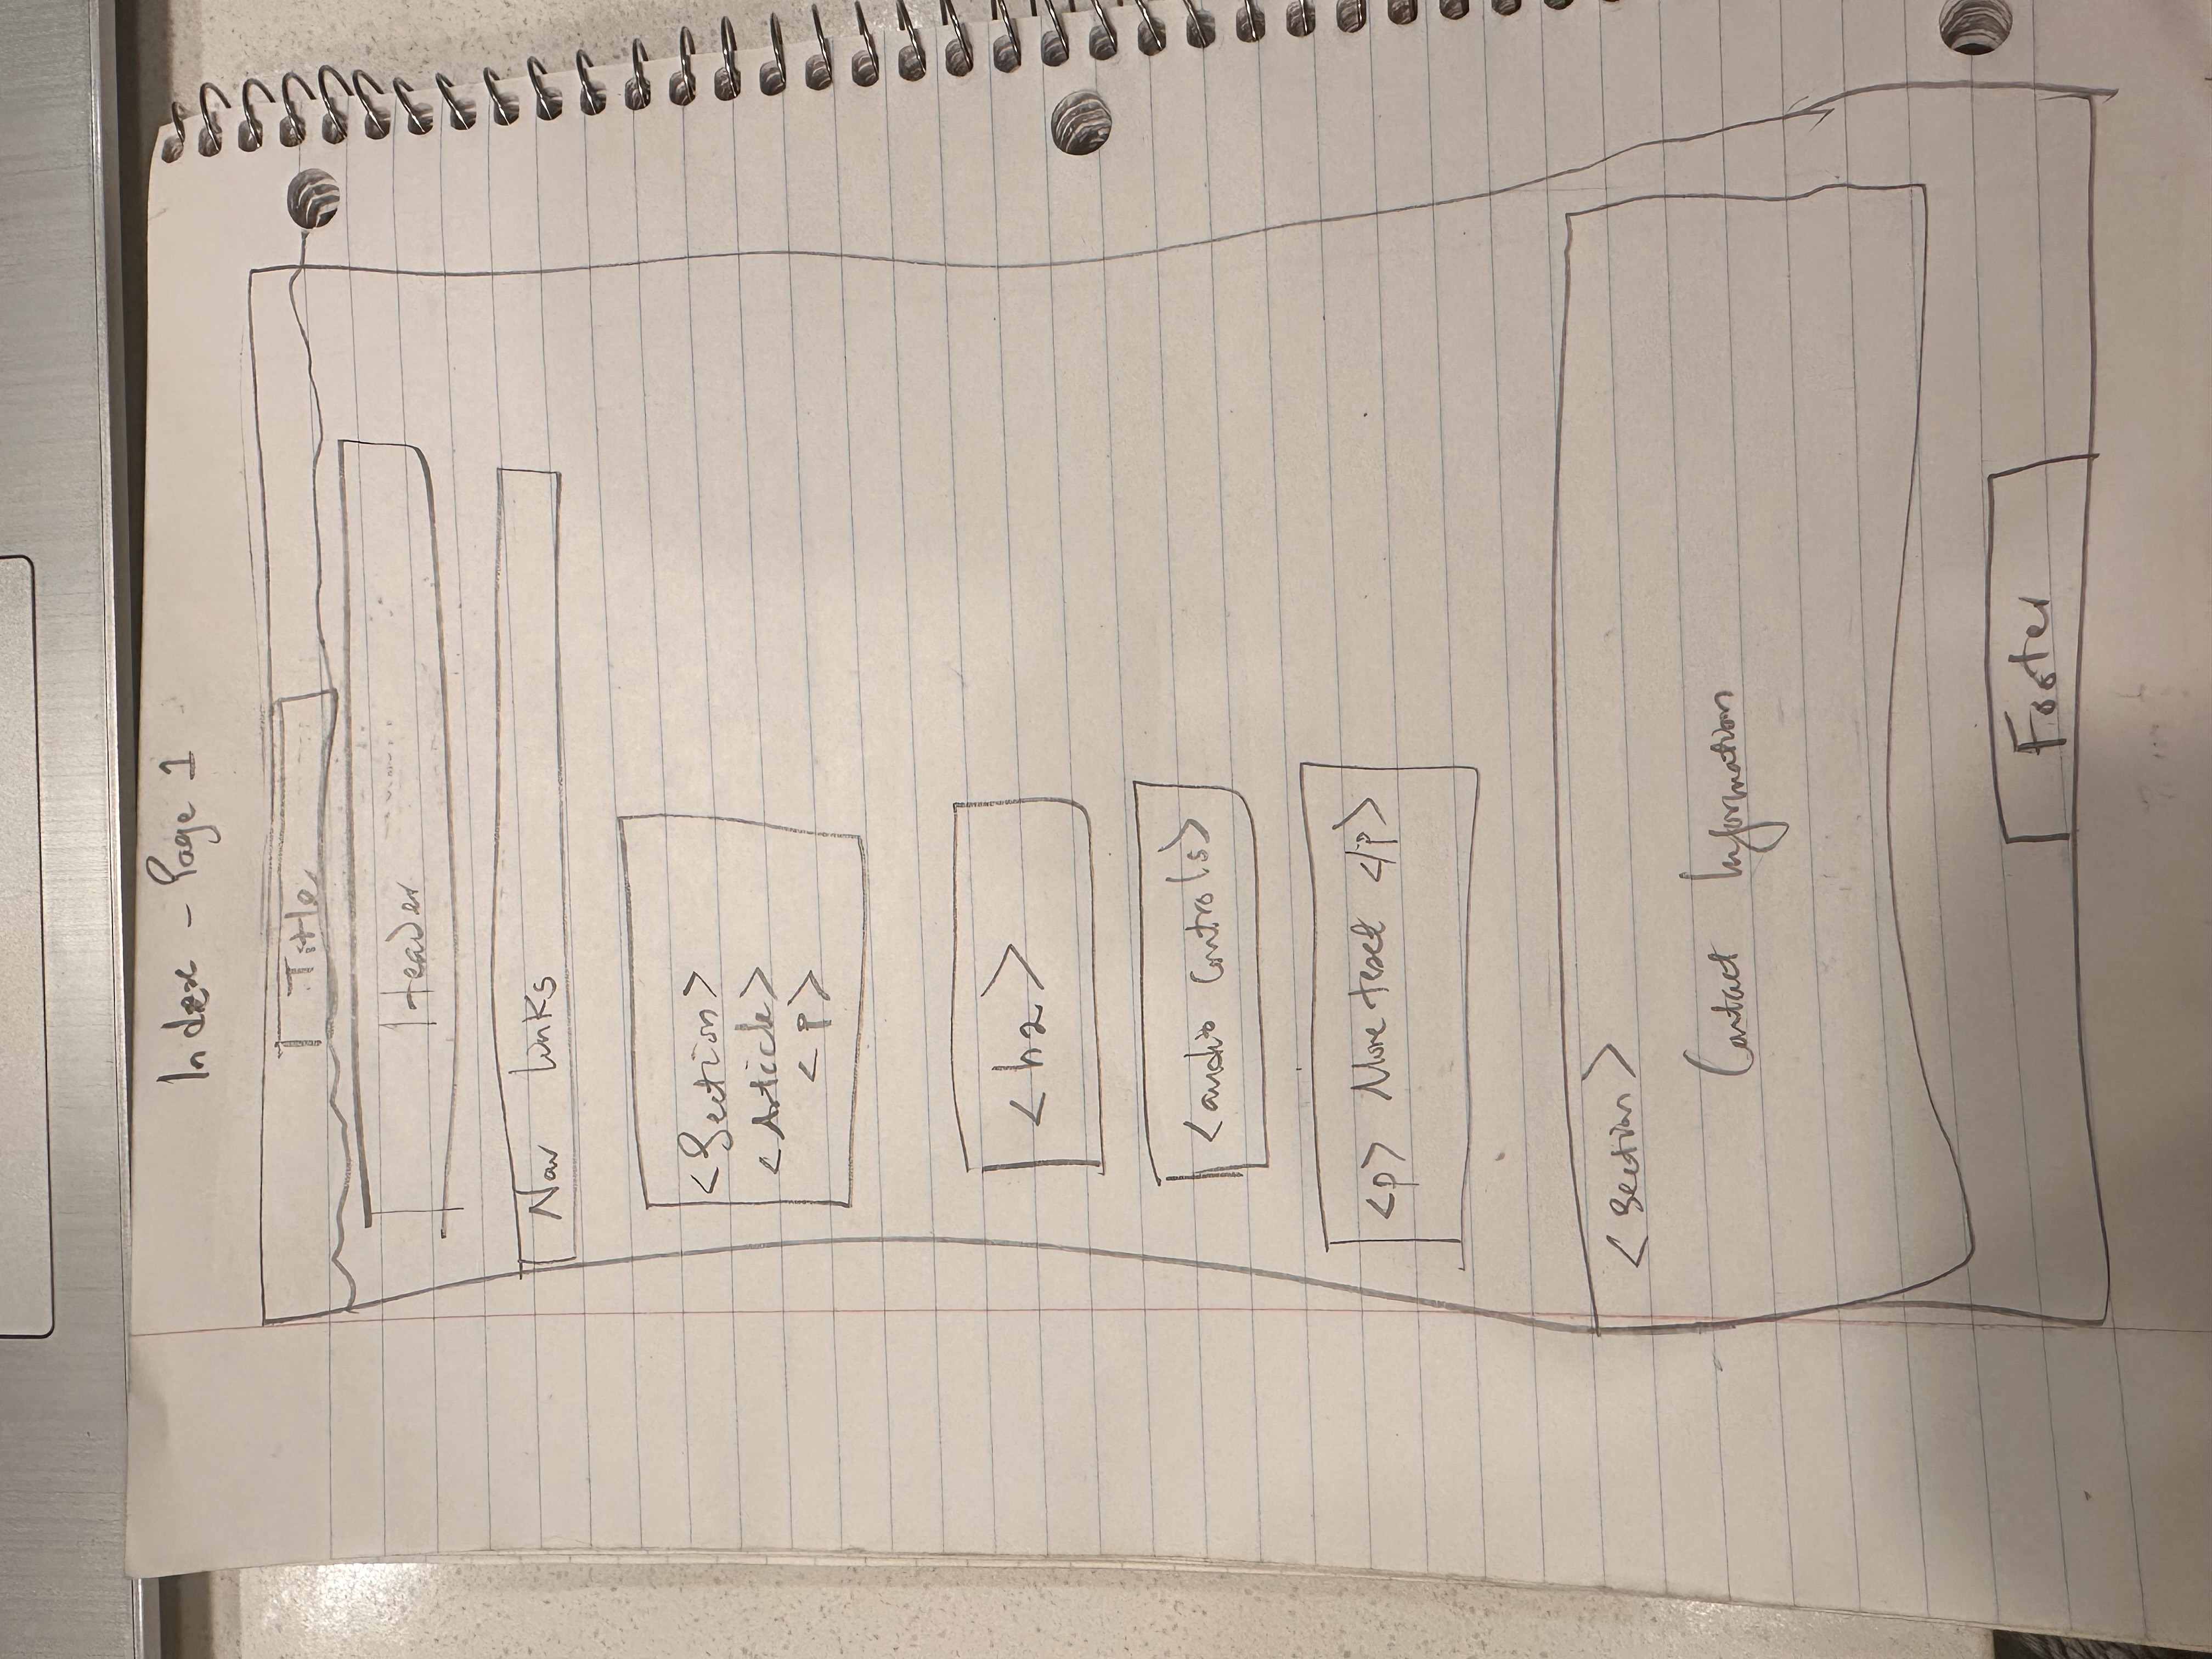 Index - Page 1
Title
Header
Nav links
<Section>
<Article>
<p>
<h2>
<audio controls>
<p> More text </p>
<section>
Contact Information
Footer